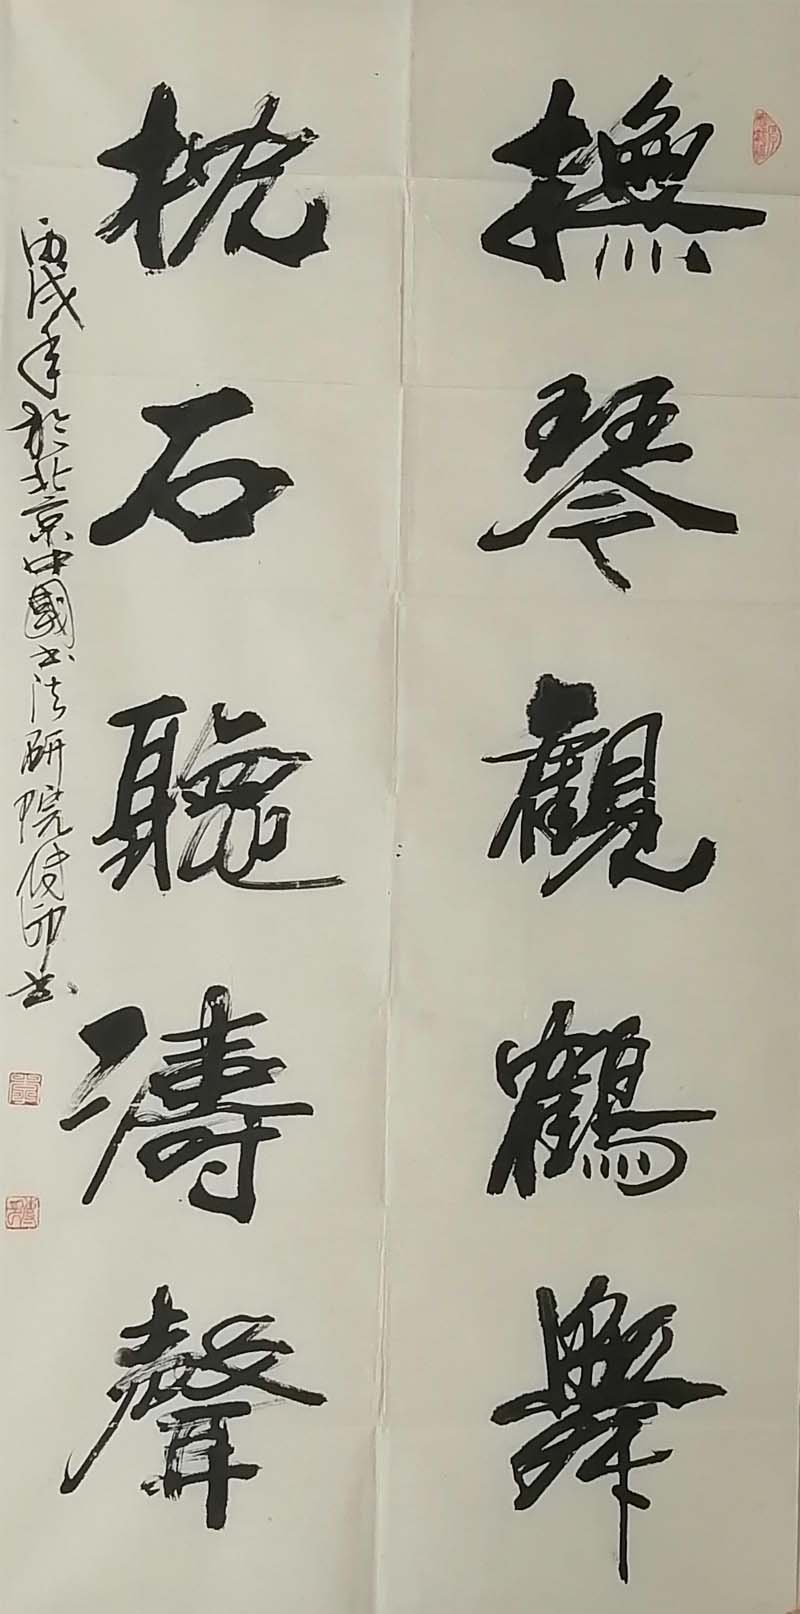 撫琴觀鶴舞
枕石聽濤聲
丙戌年於北京中國書法研院付印書